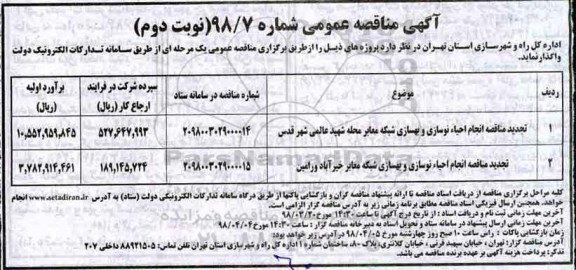 آگهی مناقصه عمومی شماره ۹۸/۷(نوبت دوم)
اداره کل راه و شهرسازی استان تهران در نظر دارد پروژه های ذیل را از طریق برگزاری مناقصه عمومی یک مرحله ای از طریق سامانه تدارکات الکترونیک دولت
واگذار نماید.
ردیف موضوع شماره مناقصه در سامانه ستاد سپرده شرکت در فرایند ارجاع کار (ریال) برآورد اولیه (ریال)
۱ تجدید مناقصه انجام احیاء نوسازی و بهسازی شبکه معابر محله شهید عالمی شهر قدس ۲۰۹۸۰۰۳۰۲۹۰۰۰۰۱۴ ۵۲۷,۶۴۷,۹۹۳ ۱۰,۵۵۲,۹۵۹,۸۴۵
۲ تجدید مناقصه انجام احیاء نوسازی و بهسازی شبکه معابر خیرآباد ورامین ۲۰۹۸۰۰۳۰۲۹۰۰۰۰۱۵ ۱۸۹,۱۴۵,۷۲۴ ۳,۷۸۲,۹۱۴,۴۶۱
کلیه مراحل برگزاری مناقصه از دریافت اسناد مناقصه تا ارائه پیشنهاد مناقصه گران و بازگشایی پاکتها از طریق درگاه سامانه تدارکات الکترونیکی دولت (ستاد) به آدرس www.setadiran.ir انجام
خواهد. همچنین ارسال فیزیکی اسناد مناقصه مطابق برنامه زمانی زیر به آدرس مناقصه گزار الزامی است.
آخرین مهلت زمانی ثبت نام و دریافت اسناد : از تاریخ درج آگهی تا ساعت ۱۴:۳۰ مورخ ۹۸/۰۳/۲۰
آخرین مهلت زمانی ارسال پیشنهاد در سامانه ستاد و تحویل اسناد به دبیرخانه مناقصه گزار : ساعت ۱۴:۳۰ مورخ ۹۸/۰۴/۰۴
زمان بازگشایی پاکات : راس ساعت ۱۰ صبح روز چهارشنبه مورخ ۹۸/۰۴/۰۵ در آدرس زیر خواهد بود:
آدرس مناقصه گزار: تهران ، خیابان سپهبد قرنی، خیابان کلانتری، پلاک ۸۰، ساختمان شماره ۱ اداره کل راه و شهرسازی استان تهران تلفن تماس: ۸۸۹۲۱۵۰۵ داخلی ۲۰۷
تذکر: پرداخت هزینه آگهی بر عهده برنده مناقصه می باشد.